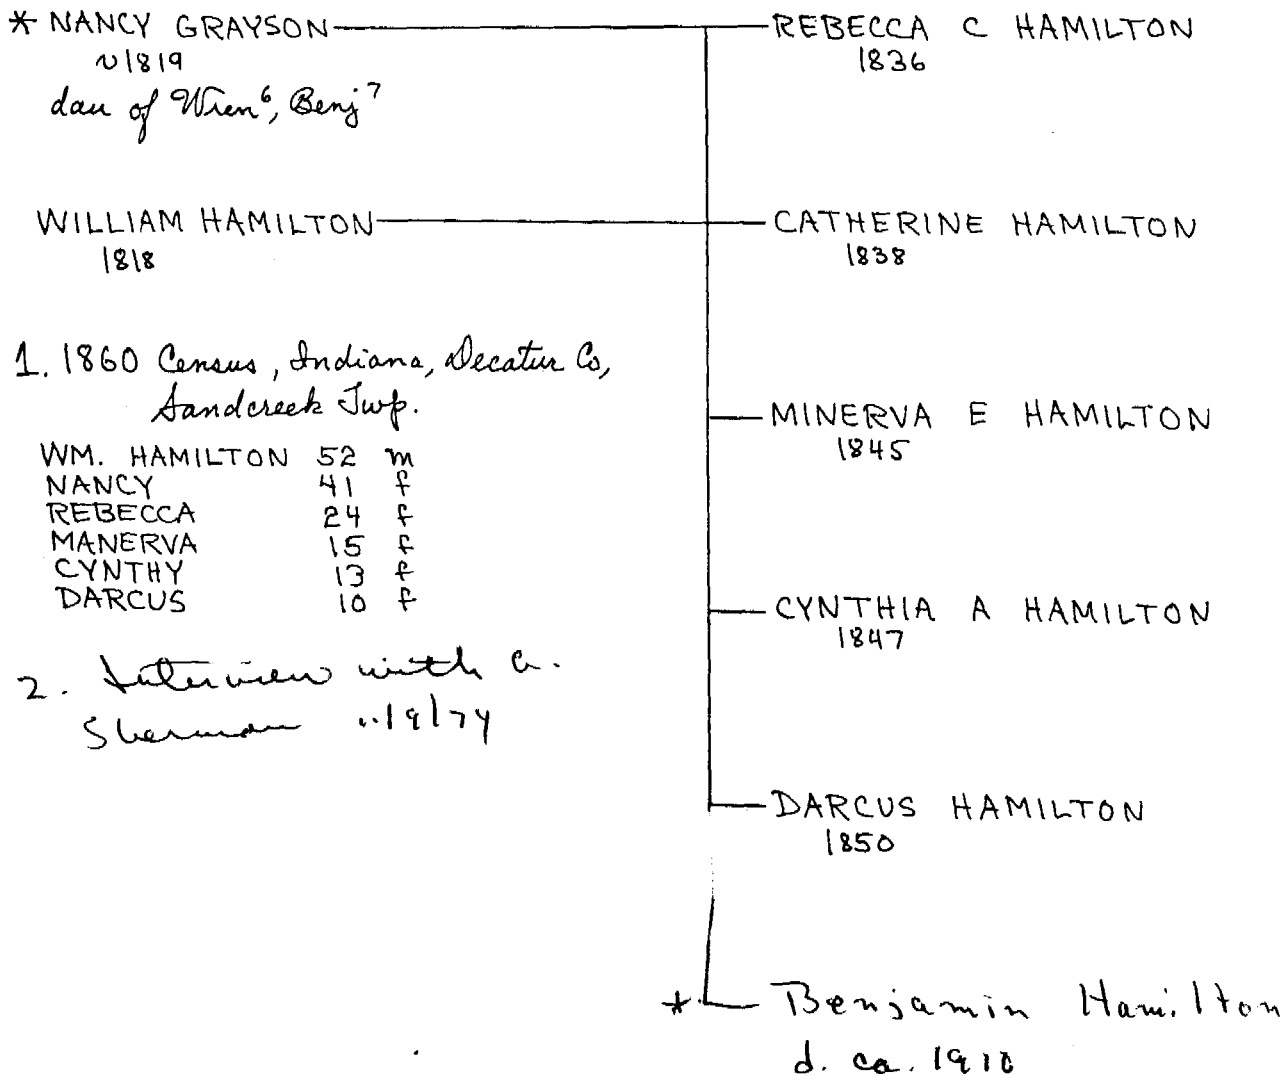 * NANCY GRAYSON
~1819
dau of Wren⁶, Benj⁷
WILLIAM HAMILTON
1818
1. 1860 Census, Indiana, Decatur Co,
Sandcreek Twp.
WM. HAMILTON 52 m
NANCY 41 f
REBECCA 24 f
MANERVA 15 f
CYNTHY 13 f
DARCUS 10 f
2. Interview with
Sherman
REBECCA C HAMILTON
1836
CATHERINE HAMILTON
1838
MINERVA E HAMILTON
1845
CYNTHIA A HAMILTON
1847
DARCUS HAMILTON
1850
* Benjamin Hamilton
d. ca. 1910